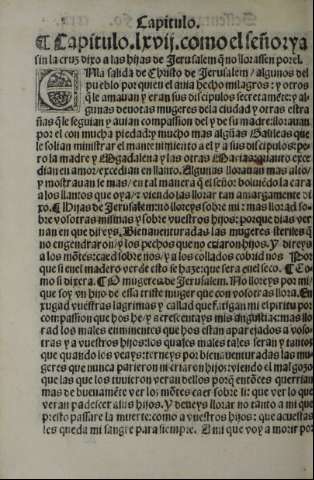 Capitulo.
¶ Capitulo. lxvij. como el señor ya
sin la cruz dixo a las hijas de Jerusalem q̃ no llorassen por el.
EN la salida de Christo de Jerusalem / algunos del
pueblo por quien el auia hecho milagros: y otros
q̃ le amauan y eran sus discipulos secretamẽte: y al-
gunas deuotas mugeres de la ciudad y otras estra
ñas q̃ le seguian y auian compassion del y de su madre: llorauan
por el con mucha piedad: y mucho mas algũas Galileas que
le solian ministrar el mantenimiẽto a el y a sus discipulos: pe-
ro la madre y Magdalena y las otras Marias: quanto exce
dian en amor / excedian en llanto. Algunas llorauan mas alto /
y mostrauan se mas / en tal manera q̃ el señor: boluiẽdo la cara
a los llantos que oya / r viendo las llorar tan amargamente di
xo. ¶ Hijas de Jerusalem: no lloreys sobre mi: mas llorad so-
bre vosotras mismas y sobre vuestros hijos: porque dias ver
nan en que direys. Bienauenturadas las mugeres steriles q̃
no engendraron / y los pechos que no criaron hijos. Y direys
a los mõtes: caed sobre nos / y a los collados cobrid nos Por
que si en el madero verde esto se haze: que sera en el seco. ¶ Co
mo si dixera. ¶ O mugeres de Jerusalem. No lloreys por mi /
que soy vn hijo de essa triste muger que con vosotras llora. En
xugad vuestras lagrimas y callad que fatigan mi espiritu por
compassion que dos he / y acrescentays mis angustias: mas llo
rad los males eminentes que hos estan aparejados a voso-
tras y a vuestros hijos: los quales males tales seran y tantos
que quando los veays: terneys por bienauenturadas las mu
geres que nunca parieron ni criaron hijos: viendo el mal gozo
que las que los tuuieron veran dellos porq̃ entõces querrian
mas de buenamẽte ver los mõtes caer sobre si: que ver lo que
veran padescer a sus hijos. Y deueys llorar no tanto a mi que
presto passare la muerte: como a vuestros hijos: que acuestas
les queda mi sangre para siempre. A mi que voy a morir por